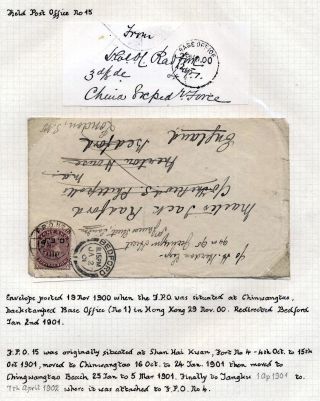 Field Post Office No 15
From
3rd Bde
China Exped. Force
BASE OFFICE
England
Bedford
London, S.W.
Merton House
Master Jack Radford
BEDFORD
JA 2
01
F.P.O.
Envelope posted 19 Nov 1900 when the F.P.O was situated at Chinwangtao,
backstamped Base Office (No 1) in Hong Kong 29 Nov. 00. Redirected Bedford
Jan 2nd 1901.
F.P.O. 15 was originally situated at Shan Hai Kwan, Fort No 4 - 4th Oct. to 15th
Oct 1901, moved to Chinwangtao 16 Oct. to 24 Jan. 1901 then moved to
Chingwangtao Beach, 25 Jan to 5 Mar 1901. Finally to Tangku 1 Ap 1901 to
7th April 1902 where it was attached to F.P.O. No 4.